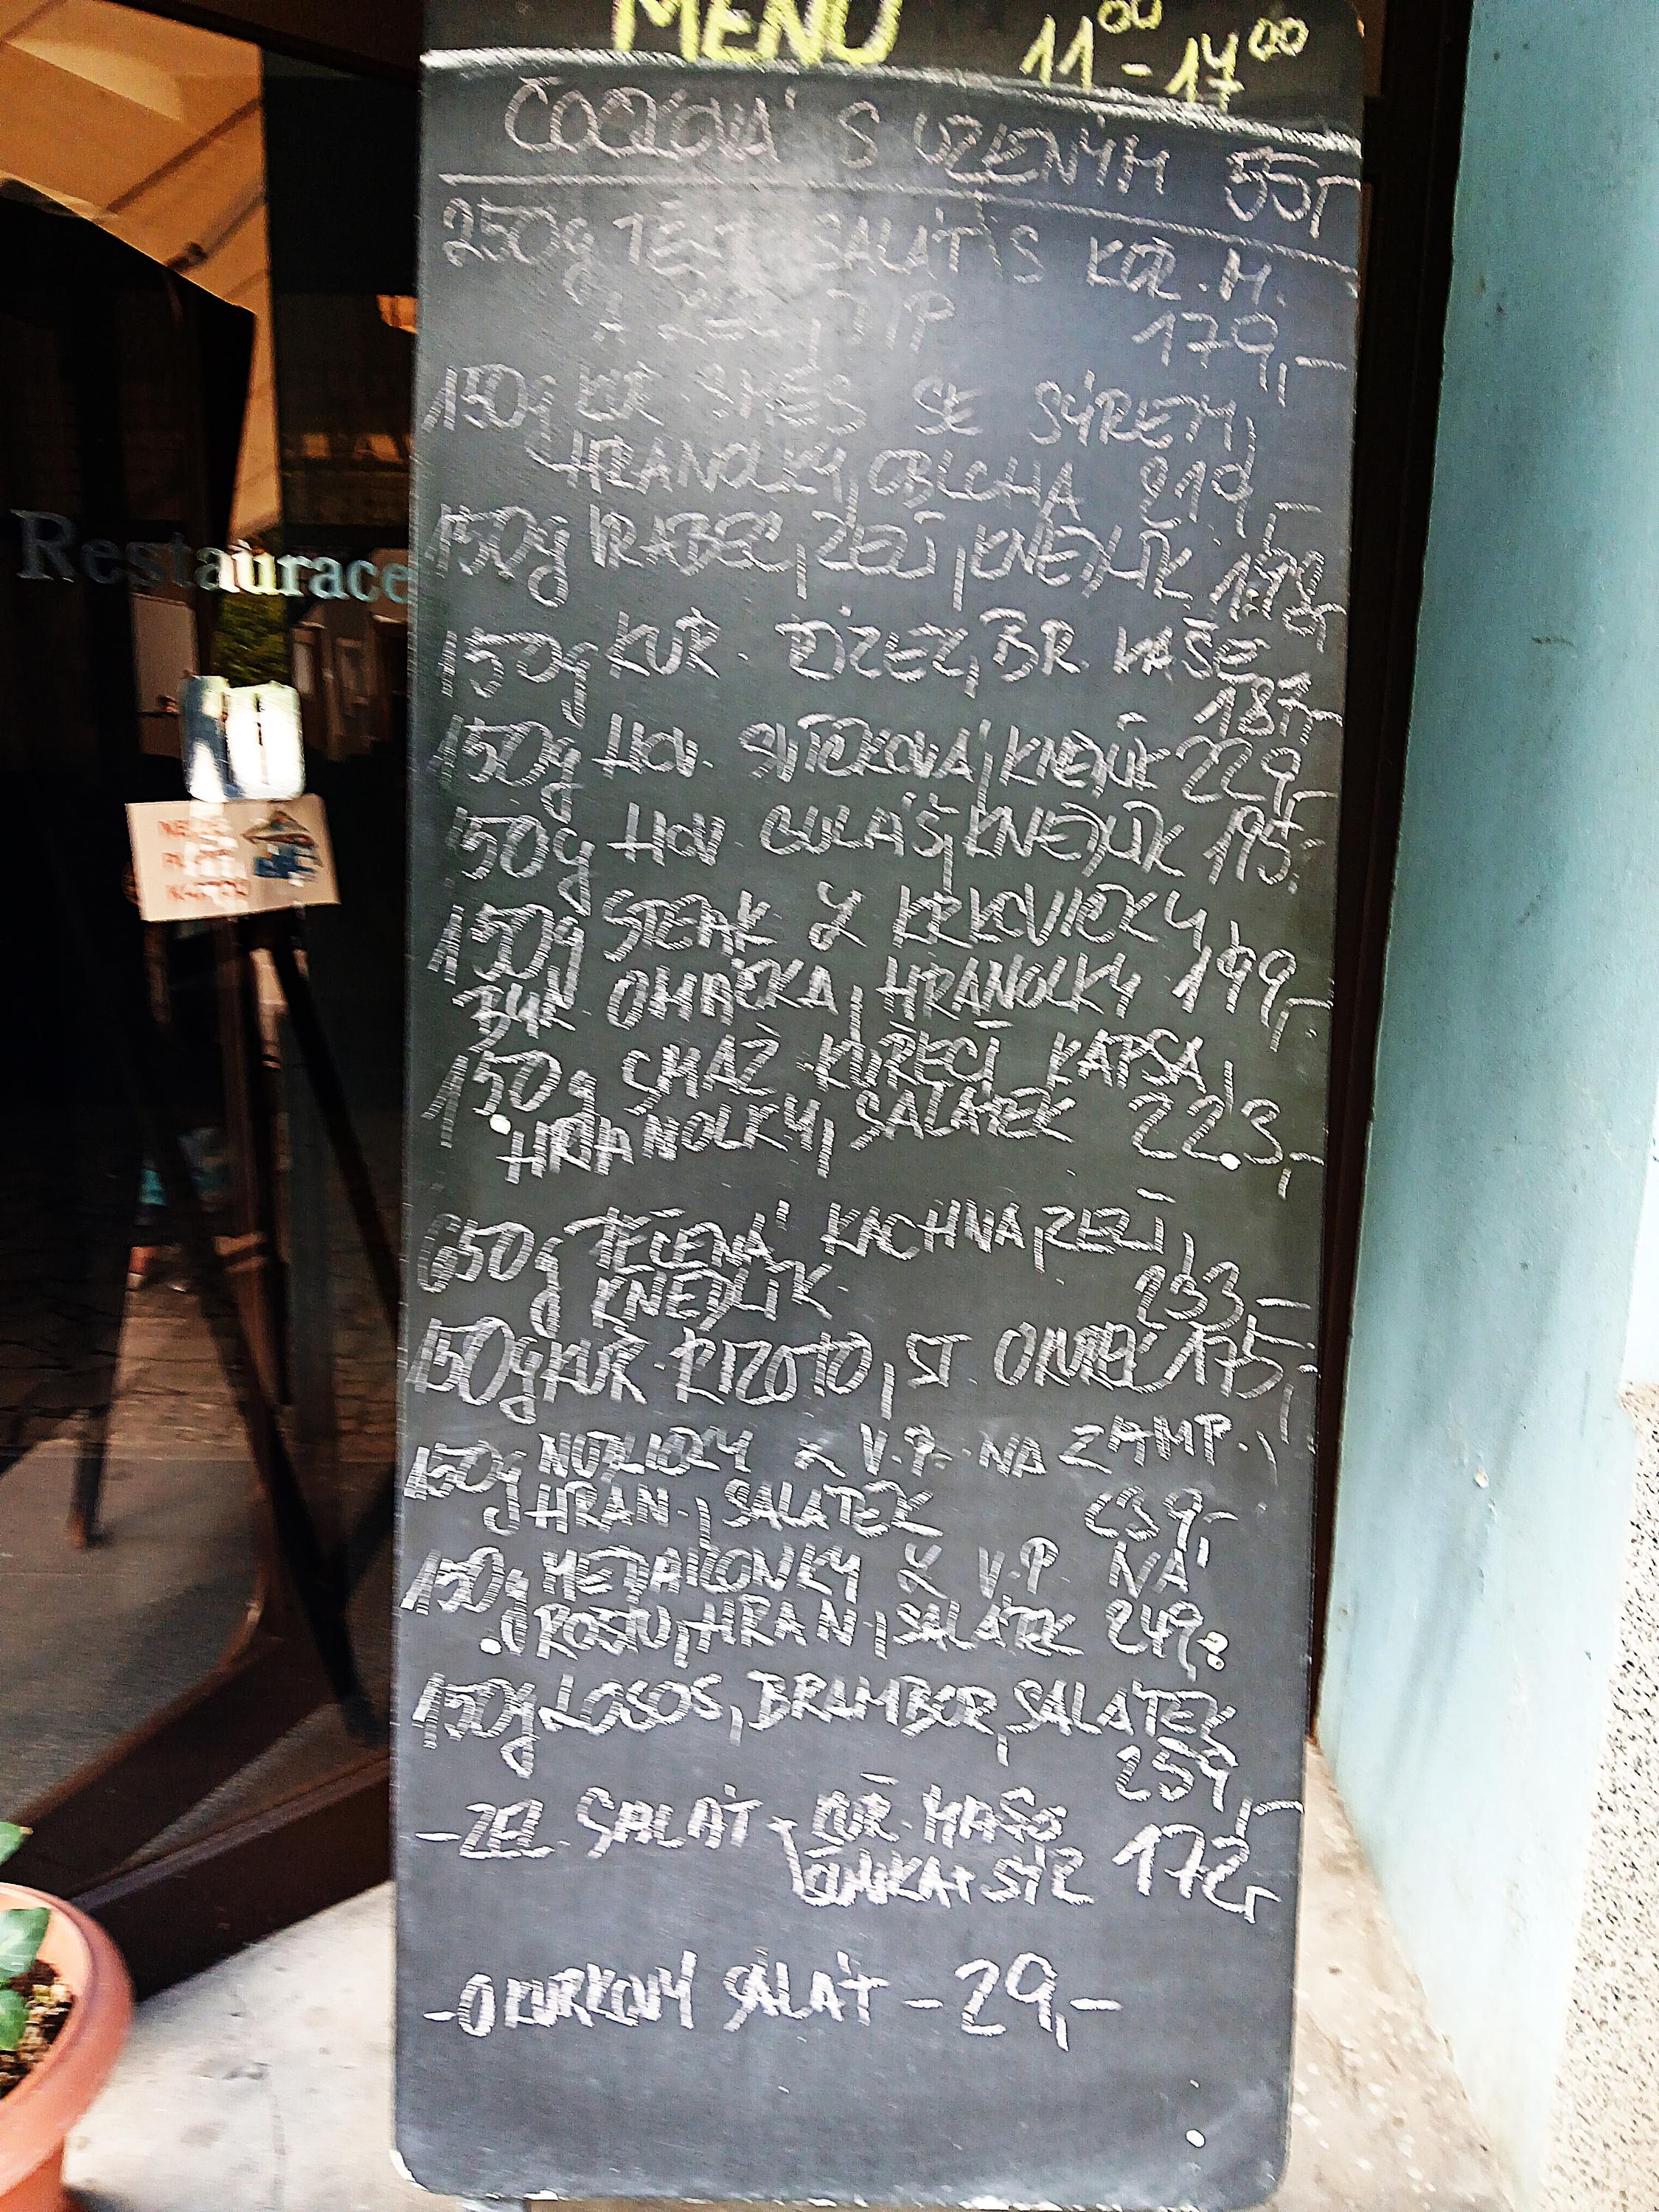 MENU 11 00 - 17 00
ČOČKOVÁ S UZENÝM 55,-
250g TĚST. SALÁT S KUŘ. M.
179,-
150g KUŘ. SMĚS SE SÝREM,
HRANOLKY, OBLOHA 219,-
150g VRABEC, ZELÍ, KNEDLÍK
150g KUŘ. ŘÍZEK, BR. KAŠE
150g HOV. SVÍČKOVÁ, KNEDLÍK 229,-
150g HOV. GULÁŠ, KNEDLÍK 195,-
150g STEAK Z KRKOVIČKY,
OMÁČKA, HRANOLKY 199,-
150g SMAŽ. KUŘECÍ KAPSA,
HRANOLKY, SALÁTEK 223,-
650g PEČENÁ KACHNA, ZELÍ,
KNEDLÍK 233,-
150g KUŘ. RIZOTO, ST. OKUREK 175,-
150g NUDLIČKY Z V.P. NA ŽAMP.,
HRAN., SALÁTEK 239,-
150g MEDAILONKY Z V.P. NA
ROŠTU, HRAN., SALÁTEK 249,-
150g LOSOS, BRAMBOR, SALÁTEK
259,-
- ZEL. SALÁT - KUŘ. MASO
ŠUNKA + SÝR 172,-
- OKURKOVÝ SALÁT - 29,-
Restaurace